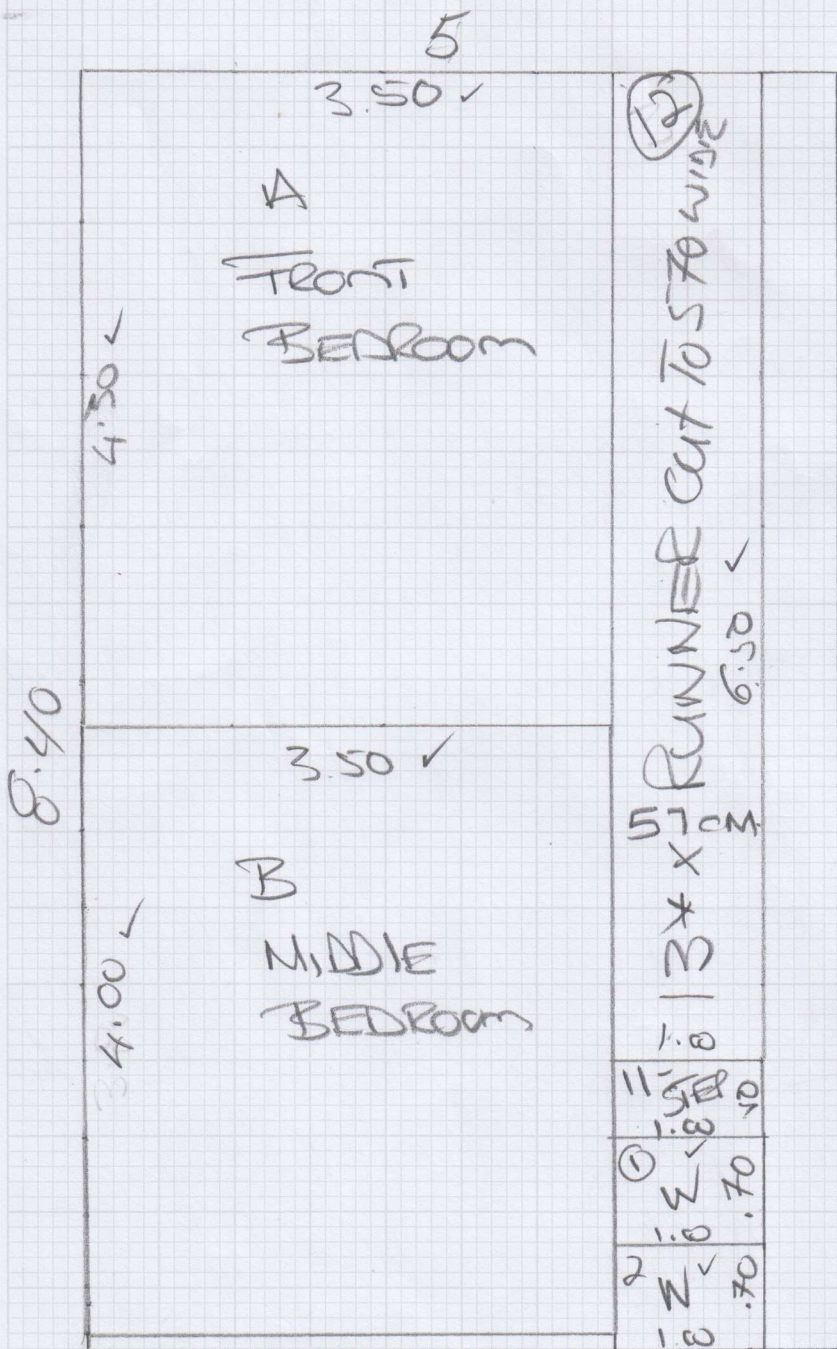 5
3.50 ✓
A
FRONT
BEDROOM
4.30 ✓
8.40
3.50 ✓
B
MIDDLE
BEDROOM
4.00 ✓
12
RUNNER CUT TO 570 WIDE
6.50 ✓
57 CM
13 * X
1.0
11 STEP
.50
1.0
1 W ✓
.70
1.0
2 W ✓
.70
1.0